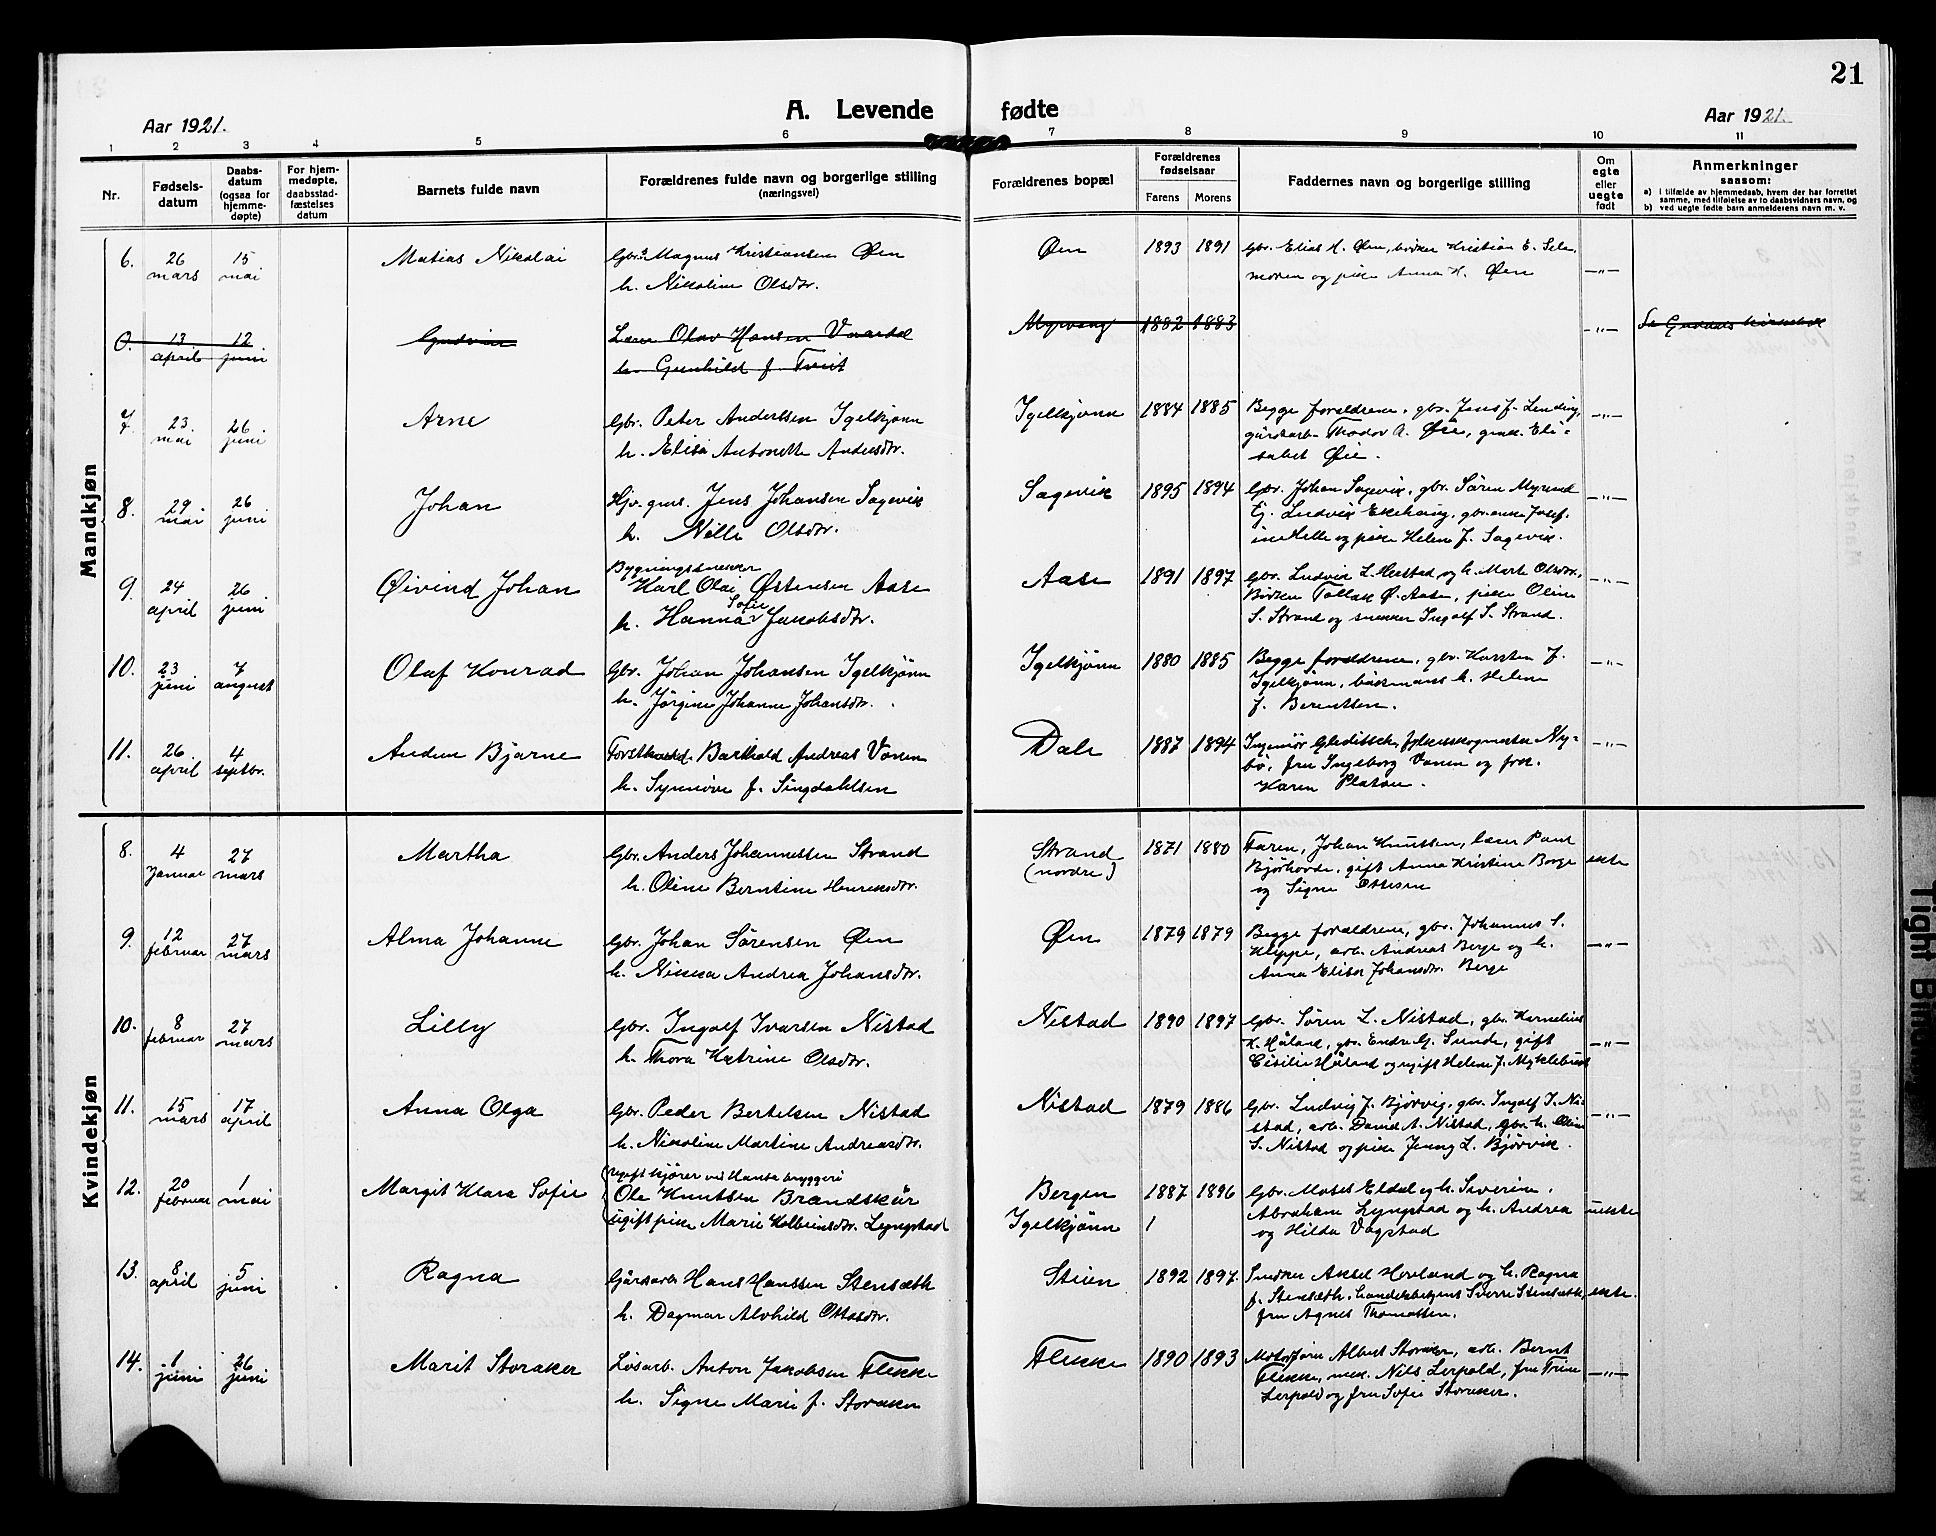 21
A. Levende fødte
Aar 1921.
Aar 1921.
1 2 3 4 5 6 7 8 9 10 11
Nr.
Fødsels-
datum
Daabs-
datum
(ogsaa for
hjemme-
døpte)
For hjem-
medøpte,
daabsstad-
fæstelses
datum
Barnets fulde navn
Forældrenes fulde navn og borgerlige stilling
(næringsvei)
Forældrenes bopæl
Forældrenes
fødselsaar
Farens Morens
Faddernes navn og borgerlige stilling
Om
egte
eller
uegte
født
Anmerkninger
saasom:
a) I tilfælde av hjemmedaab, hvem der har forrettet
samme, med tilføielse av to daabsvidners navn, og
b) ved uegte fødte barn anmelderens navn m. v.
Mandkjøn
6. 26 mars 15 mai Matias Nikolai
Gbr. Magnus Kristiansen Øen
h. Nikoline Olsdtr.
Øen 1893 1891
Gbr. Elias H. Øen, Kristian E.
og pike Anna H. Øen
—"—
0. 13 april 12 juni Gudvin
Lærer Olav Hansen
h. Gunhild f. Tveit
Myrvang 1882 1883
—"—
7. 23 mai 26 juni Arne
Gbr. Peter Anderssen Igelkjønn
h. Elisa Antonette Andersdtr.
Igelkjønn 1884 1885
Begge forældrene, gbr. Jens J.
gårdarb. Teodor A. Øie, Eli-
sabet Øie.
—"—
8. 29 mai 26 juni Johan
Jens Johansen Sagevik
h. Nelle Olsdtr.
Sagevik 1895 1894
Gbr. Johan Sagevik, gbr. Søren
Ludvik
og pike Helene J. Sagevik.
—"—
9. 24 april 26 juni Øivind Johan
Bygningssnekker
Karl Olai Østensen Aase
h. Hanna Sofie Jakobsdtr.
Aase 1891 1897
Gbr. Ludvik L. Herstad og h. Marte Olsdtr.,
Tollak Ø. Aase, pike Oline
S. Strand og snekker Ingolf S. Strand.
—"—
10. 23 juni 7 august Olaf Konrad
Gbr. Johan Johansen Igelkjønn
h. Jørgine Johanne Johansdtr.
Igelkjønn 1880 1885
Begge forældrene, gbr. Karsten J.
Igelkjønn, h. Helene
f. Berentsen.
—"—
11. 26 april 4 septbr. Audun Bjarne
Barthold Andreas Vonen
h. Synnøve f. Singdahlsen
Dale 1887 1894
Ingeniør Gleditsch, fylkesskogmester Ny-
bø, fru Ingeborg Vonen og frk.
Karen Platou.
—"—
Kvindekjøn
8. 4 januar 27 mars Martha
Gbr. Anders Johannessen Strand
h. Oline Berntine Henriksdtr.
Strand
(nordre)
1871 1880
Faren, Johan Knutsen, lærer Paul
Bjørhovde, gift Anna Kristine Borge
og Signe Ottesen
ekte
9. 12 februar 27 mars Alma Johanne
Gbr. Johan Sørensen Øen
h. Nikka Andrea Johansdtr.
Øen 1879 1879
Begge forældrene, gbr. Johannes S.
Kleppe, arb. Andreas Berge og h.
Anna Elisa Johansdtr. Berge
—"—
10. 8 februar 27 mars Lilly
Gbr. Ingolf Ivarsen Nistad
h. Thora Katrine Olsdtr.
Nistad 1890 1897
Gbr. Søren L. Nistad, gbr. Kornelius
H. Håland, gbr. Endre G. Sunde, gift
Cecilie Håland og ugift Helene J. Myklebust
—"—
11. 15 mars 17 april Anna Olga
Gbr. Peder Bertelsen Nistad
h. Nikoline Martine Andreasdtr.
Nistad 1879 1886
Gbr. Ludvig J. Bjørvig, gbr. Ingolf I. Ni-
stad, arb. David A. Nistad, gbr. h. Oline
S. Nistad og pike Jenny L. Bjørvik.
—"—
12. 20 februar 1 mai Margit Klara Sofie
Ugift kjører ved Hansa bryggeri
Ole Knutsen Brandskår
Ugift pike Marie Kolbeinsdtr. Lyngstad
Bergen 1887 1896
Igelkjønn
Gbr. Moses Eldal og h. Severine,
Abraham Lyngstad og h. Andrea
og Hilda Vagstad
uekte
13. 8 april 5 juni Ragna
Gårdarb. Hans Hanssen Stensæth
h. Dagmar Alvhild Ottosdtr.
Steien 1892 1897
Snekker Aksel Hovland og h. Ragna
f. Stensæth, handelsbetjent Sverre Stensæth,
fru Agnes Thomassen.
ekte.
14. 1 juni 26 juni Marit Storaker
Løsarb. Anton Jakobsen Flekke
h. Signe Marie f. Storaker
Flekke 1890 1893
Albert Storaker, arb. Bernt
Flekke, Nils Lerpold, fru Trine
Lerpold og fru Sofie Storaker.
—"—
Tight Bin